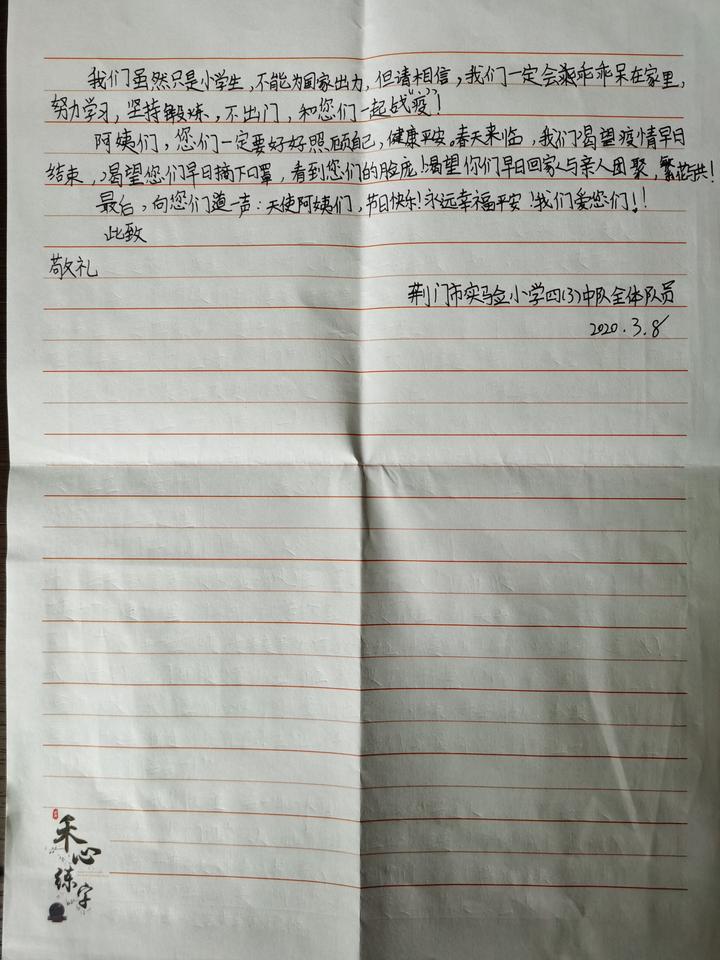 我们虽然只是小学生，不能为国家出力，但请相信，我们一定会乖乖呆在家里，
努力学习，坚持锻炼，不出门，和您们一起战疫！
阿姨们，您们一定要好好照顾自己，健康平安。春天来临，我们渴望疫情早日
结束，渴望您们早日摘下口罩，看到您们的脸庞！渴望你们早日回家与亲人团聚，繁花与共！
最后，向您们道一声：天使阿姨们，节日快乐！永远幸福平安！我们爱您们！！
此致
敬礼
荆门市实验小学四(3)中队全体队员
2020.3.8
禾心练字